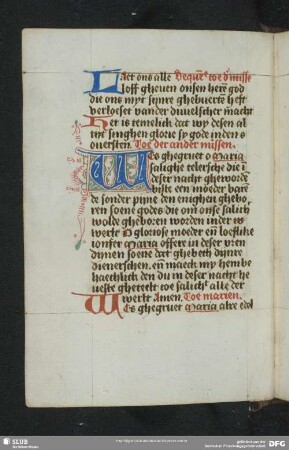 Laet ons alle Beque͂ toe d' misse
loff gheuen onsen here͂ god
die ons myt synre ghebuerte heft
verloeset vander duuelscher macht
Het is temelick dat wy desen al
int singhen glorie sy gode inden o
uersten. Toe der ander missen.
Wes ghegruet o Maria
salighe telersche die i͂
deser nacht gheworde͂
biste een moeder bare͂
de sonder pyne den enighen ghebo
ren soene godes die om onse salich
wolde gheboren worden inder es
werlt O gloriose moeder en͂ loeflike
ionfer Maria offere in deser vren
dynen soene dat ghebedt dynre
dienerschen. en͂ maeck my hem be
haechlick den du in deser nacht he
ueste ghereect toe salich' alle der
werlt Amen. Toe marien.
Wes ghegruet Maria alre edel
SLUB
DFG